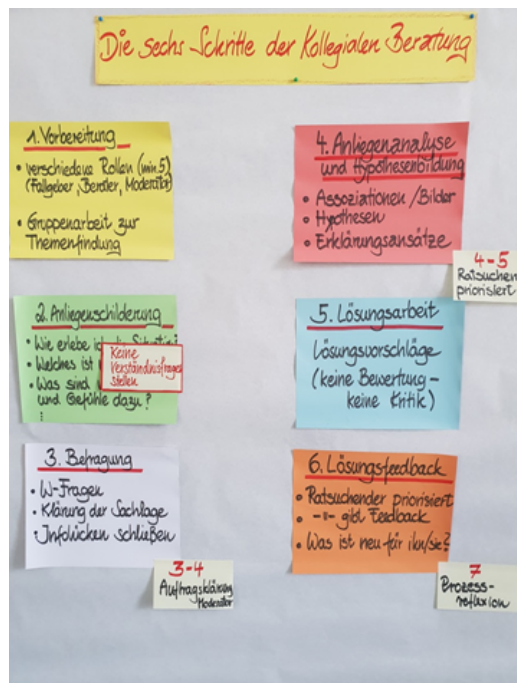 Die sechs Schritte der Kollegialen Beratung
1. Vorbereitung
• verschiedene Rollen (min.5)
(Fallgeber, Berater, Moderator)
• Gruppenarbeit zur
Themenfindung
2. Anliegenschilderung
• Wie erlebe ich die Situation?
• Welches ist
• Was sind
und Gefühle dazu?
:
Keine
Verständnisfragen
stellen
3. Befragung
• W-Fragen
• Klärung der Sachlage
• Infolücken schließen
3-4
Auftragsklärung
Moderator
4. Anliegenanalyse
und Hypothesenbildung
• Assoziationen / Bilder
• Hypothesen
• Erklärungsansätze
4-5
Ratsuchen
priorisiert
5. Lösungsarbeit
Lösungsvorschläge
(keine Bewertung -
keine Kritik)
6. Lösungsfeedback
• Ratsuchender priorisiert
• -"- gibt Feedback
• Was ist neu für ihn/sie?
7
Prozess-
reflexion